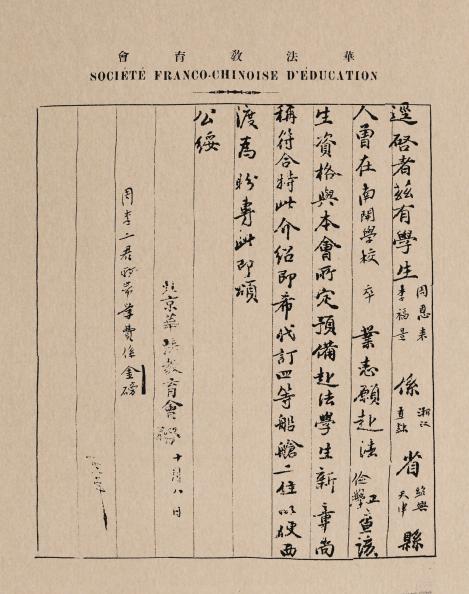 華法教育會
SOCIÉTÉ FRANCO-CHINOISE D'ÉDUCATION
逕啓者茲有學生周恩來李福景係浙江直隸省紹興天津縣
人曾在南開學校卒業志願赴法儉學工查該
生資格與本會所定預備赴法學生新章尚
稱符合特此介紹即希代訂四等船艙二位以便西
渡為盼專此即頌
公綏
北京華法教育會十月八日
周李二君所帶學費係金磅